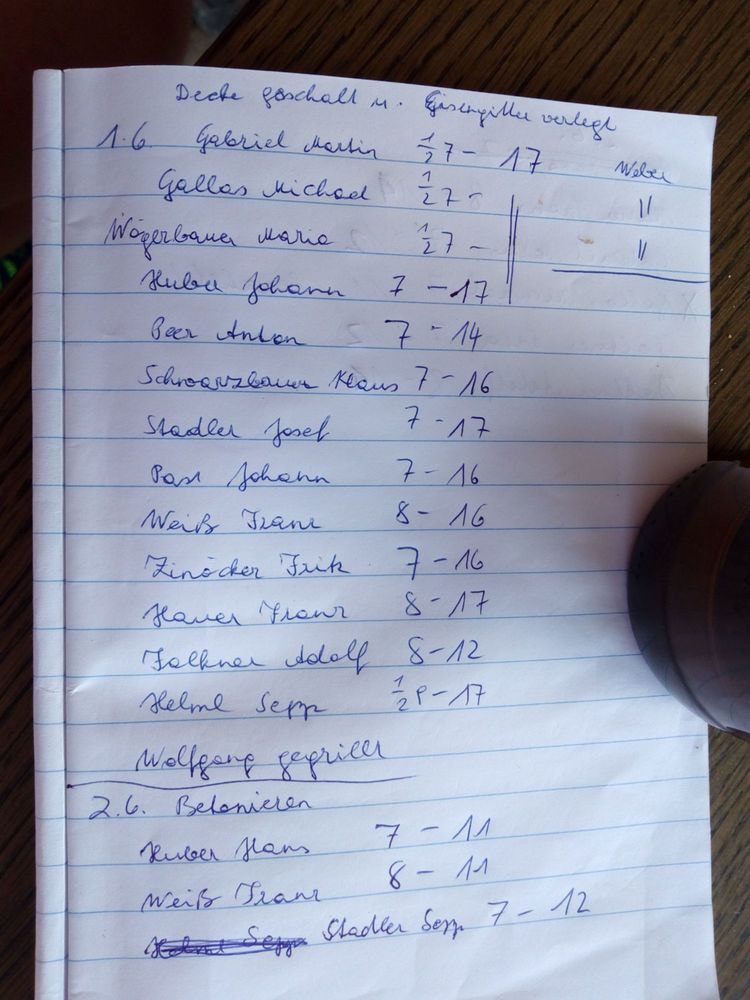 Decke geschalt u. Eisengitter verlegt
1.6. Gabriel Martin ½7 - 17 Weber
Gallas Michael ½7 - "
Wögerbauer Mario ½7 - "
Huber Johann 7 - 17
Beer Anton 7 - 14
Schwarzbauer Klaus 7 - 16
Stadler Josef 7 - 17
Johann 7 - 16
Weiß Franz 8 - 16
Zinöcker Fritz 7 - 16
Hauer Franz 8 - 17
Falkner Adolf 8 - 12
Helml Sepp ½ - 17
Wolfgang gegrillt
2.6. Betonieren
Huber Hans 7 - 11
Weiß Franz 8 - 11
Helml Sepp Stadler Sepp 7 - 12